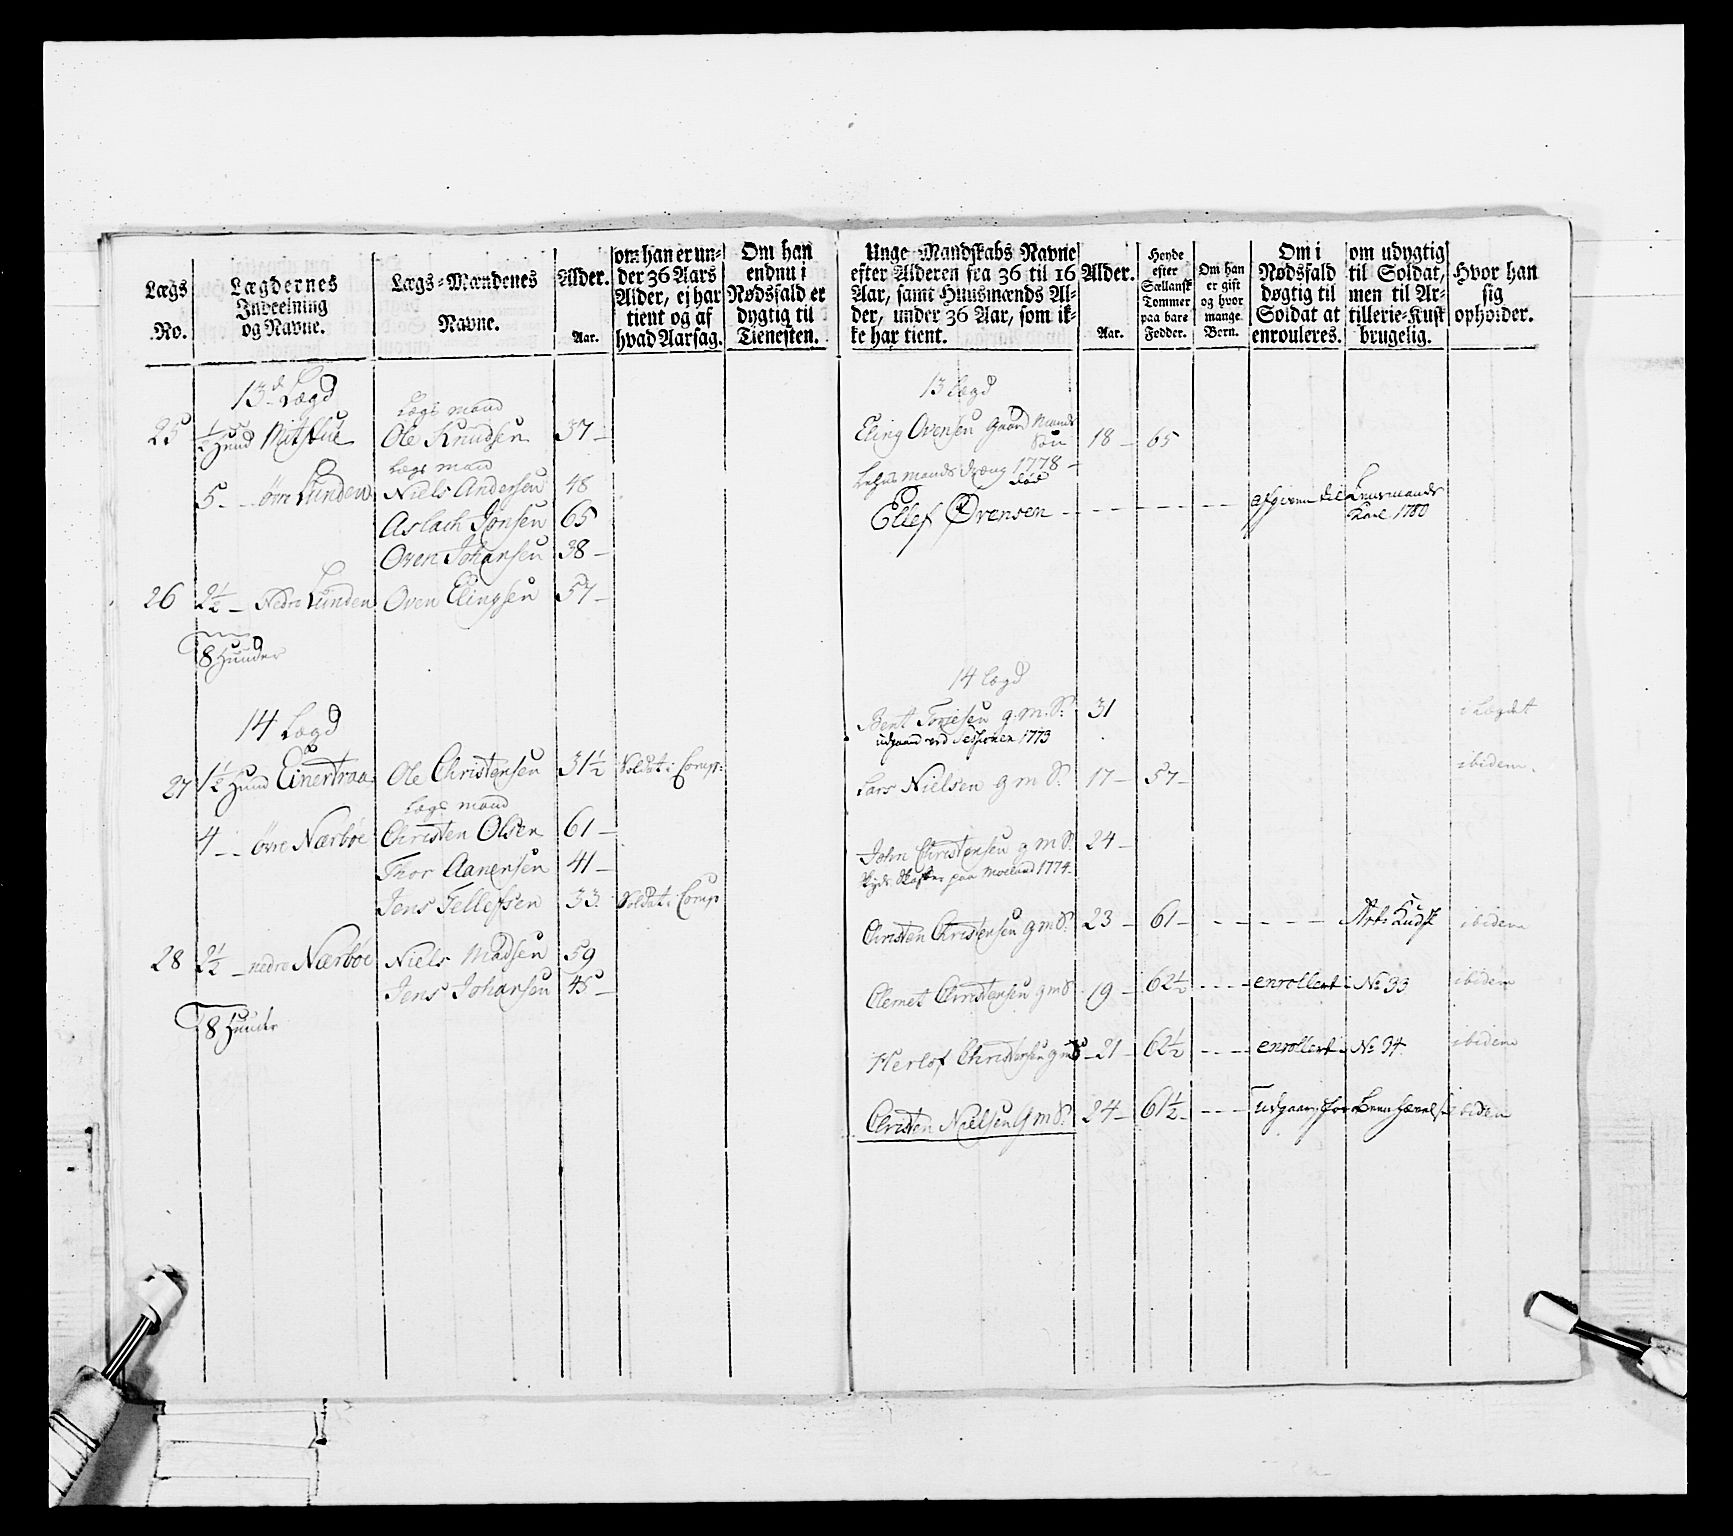 Lægs No.
Lægdernes Inddeelning og Navne.
Lægs-Mændenes Navne.
Alder. Aar.
om han er under 36 Aars Alder, ej har tient og af hvad Aarsag.
Om han endnu i Nødsfald er dygtig til Tienesten.
Unge Mandskabs Navne efter Alderen fra 36 til 16 Aar, samt Huusmænds Alder, under 36 Aar, som ikke har tient.
Alder. Aar.
Høyde efter Sællansk Tommer paa bare Fødder.
Om han er gift og hvor mange Børn.
Om i Nødsfald døgtig til Soldat at enrouleres.
om udygtig til Soldat, men til Artillerie-Kusk brugelig.
Hvor han sig opholder.
13d Lægd
Lægs mand
25 ½ Hund Mitskue Ole Knudsen 37 –
Lægs mand
5 – – øvre Lunden Niels Andersen 48
Aslach Jonsen 65
Oven Johansen 38 –
26 2½ – Nedre Lunden Oven Elingsen 57 –
8 Hunder
14 Lægd
27 1½ Hund Einertraa Ole Christensen 31½ Soldat i Comp:
Lægs mand
4 – – øvre Nærbøe Christen Olsen 61 –
Thor Aanensen 41 –
Jens Tellefsen 33. Soldat i Comp
28 2½ – nedre Nærbøe Niels Madsen 59
Jens Johansen 45 –
8 Hunder
13 Lægd
Eling Ovensen gaard Mands Søn 18 – 65
mands dræng 1778 –
død
Ellef Ovensen – – – – – – – afgiven til Lensmands
Karl 1780
14 Lægd
Bent Toriesen g. m. S: 31 i Lægdet
udgaard ved Sessionen 1773
Lars Nielsen g m S. 17 – 57 – ibidem.
John Christensen g m S. 24 –
Skyds Skaffer paa Moeland 1774.
Christen Christensen g m S. 23 – 61 – – – – – Art: Kudsk ibidem
Clemet Christensen g m S 19 – 62½ – – – enrollert – No 33 ibidem
Herlof Christensen g m S – 21 – 62½ – – – enrollert – No 34. ibidem
Christen Nielsen g m S. 24 – 61½ – – – – udgaar for ibidem